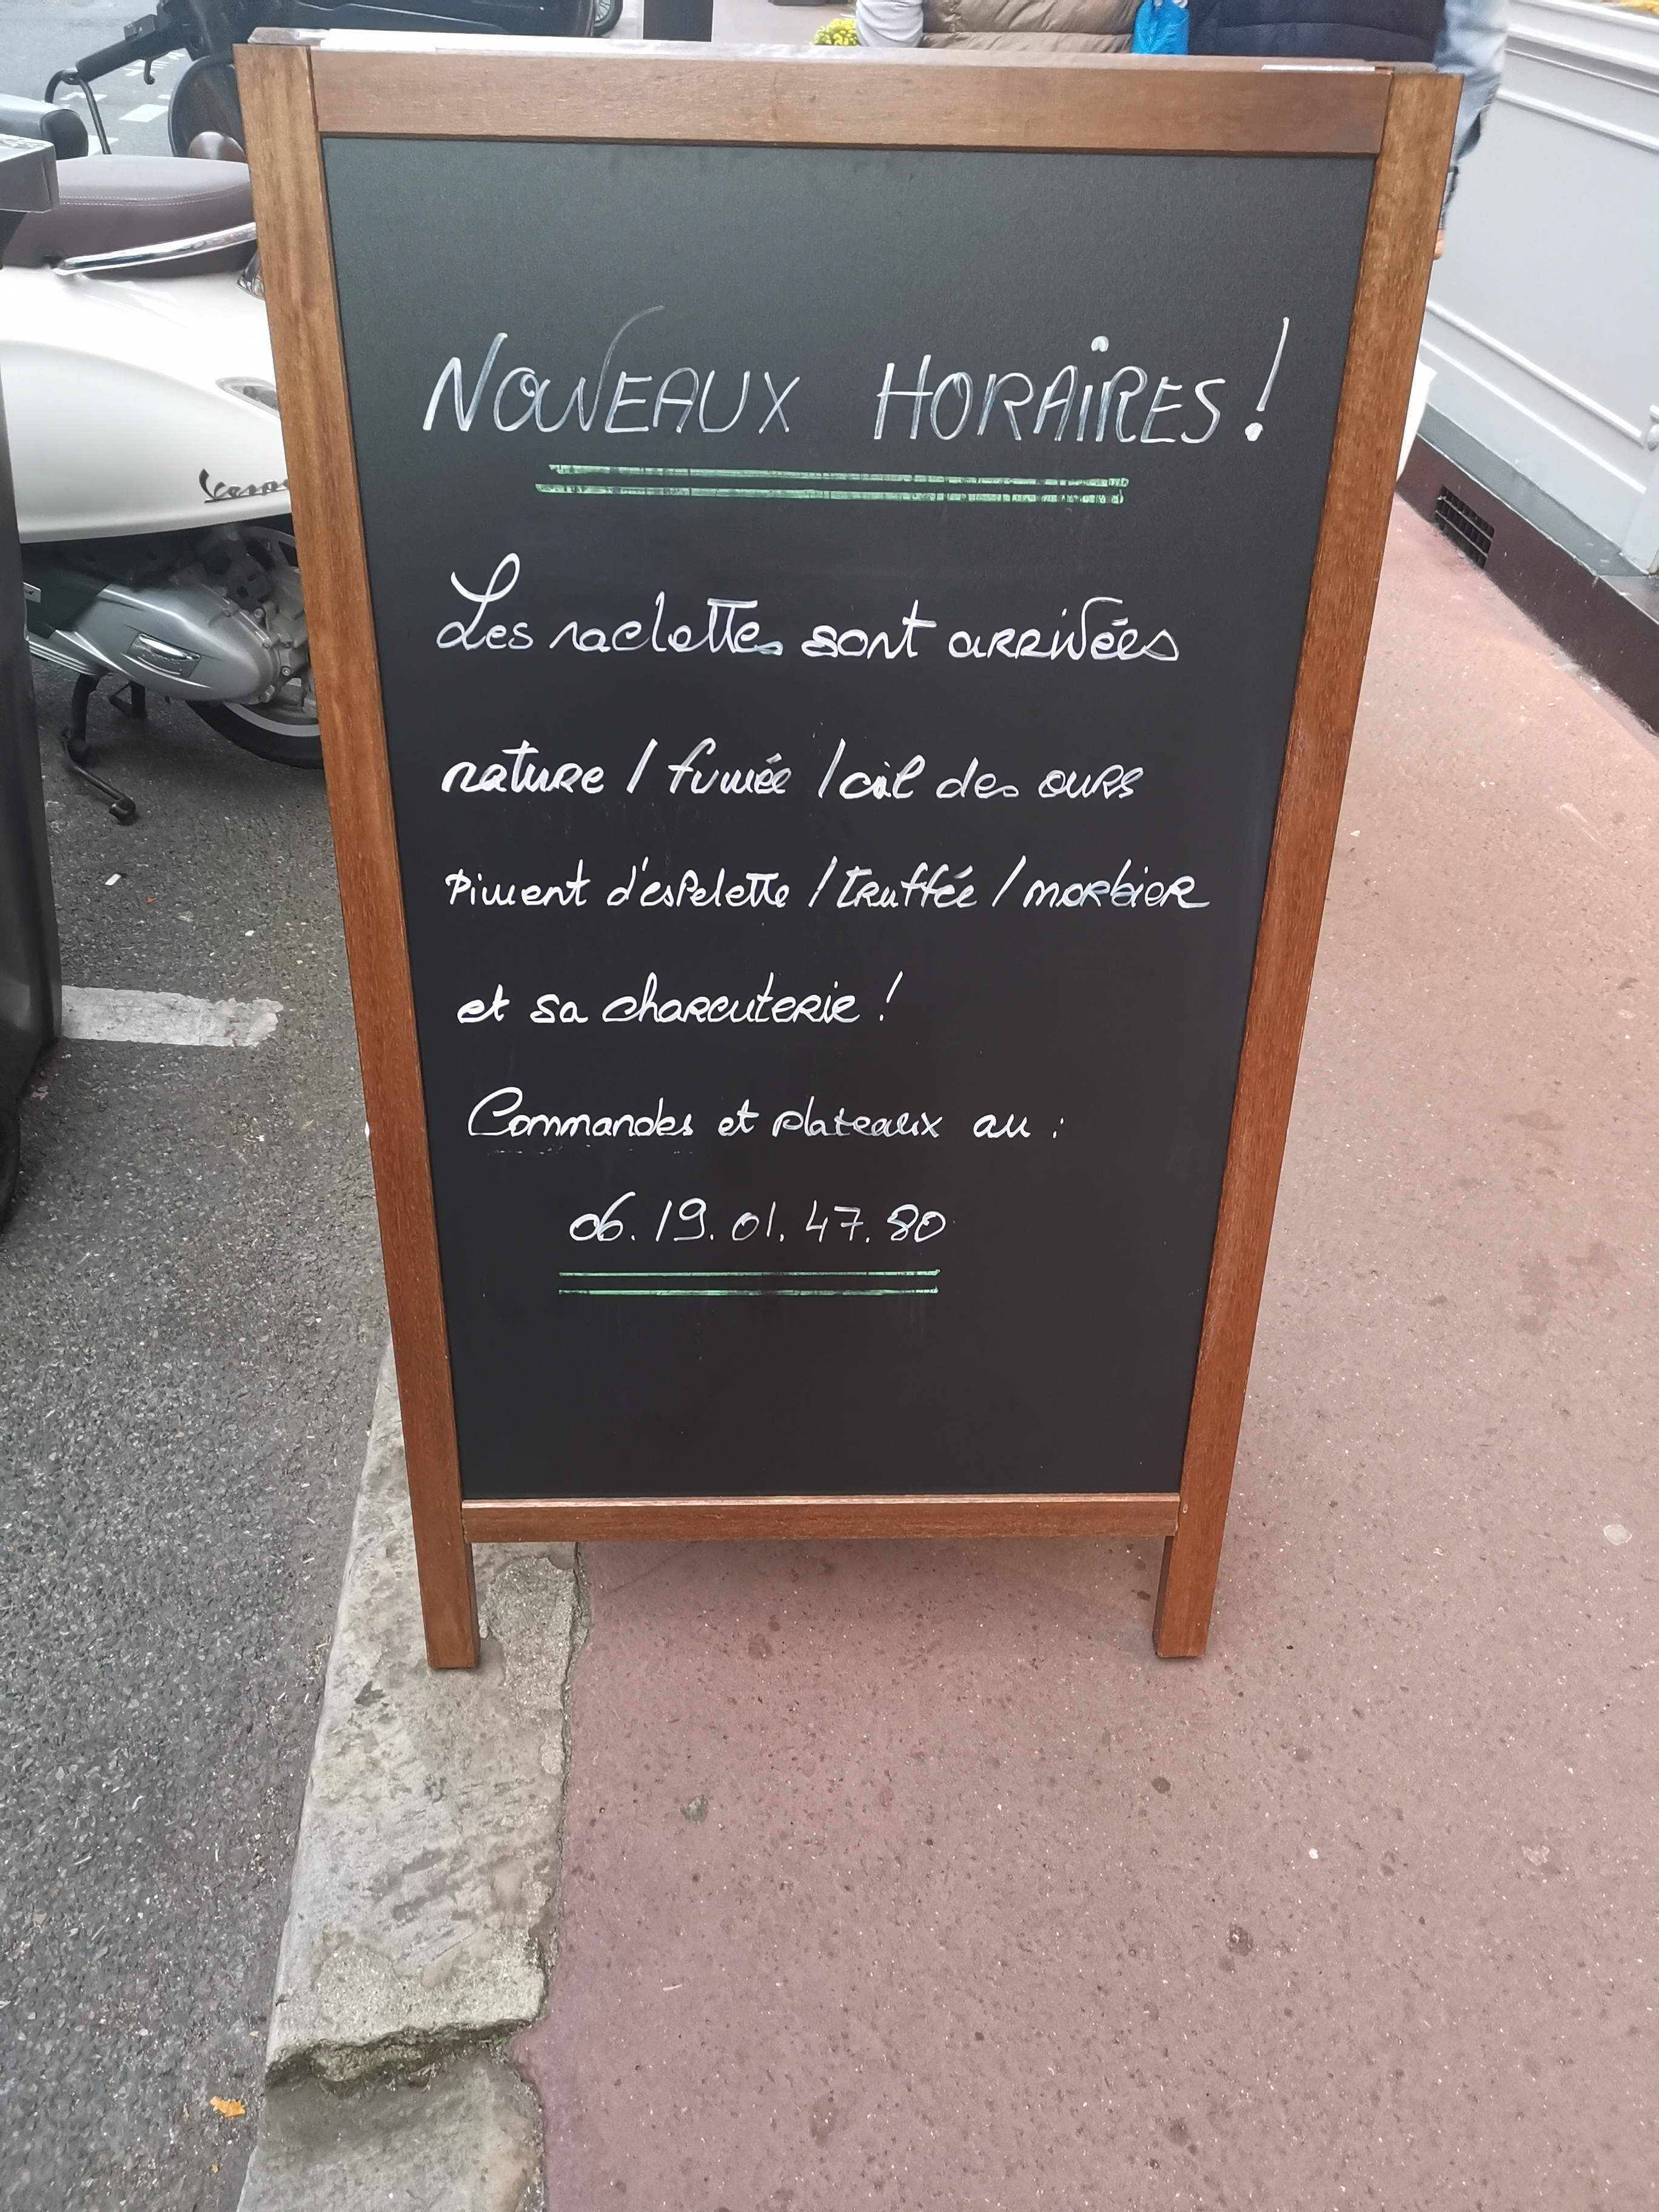 NOUVEAUX HORAIRES !
Les raclettes sont arrivées
nature / fumée / ail des ours
Piment d'esPelette / truffée / morbier
et sa charcuterie !
Commandes et plateaux au :
06.19.01.47.80
Vespa